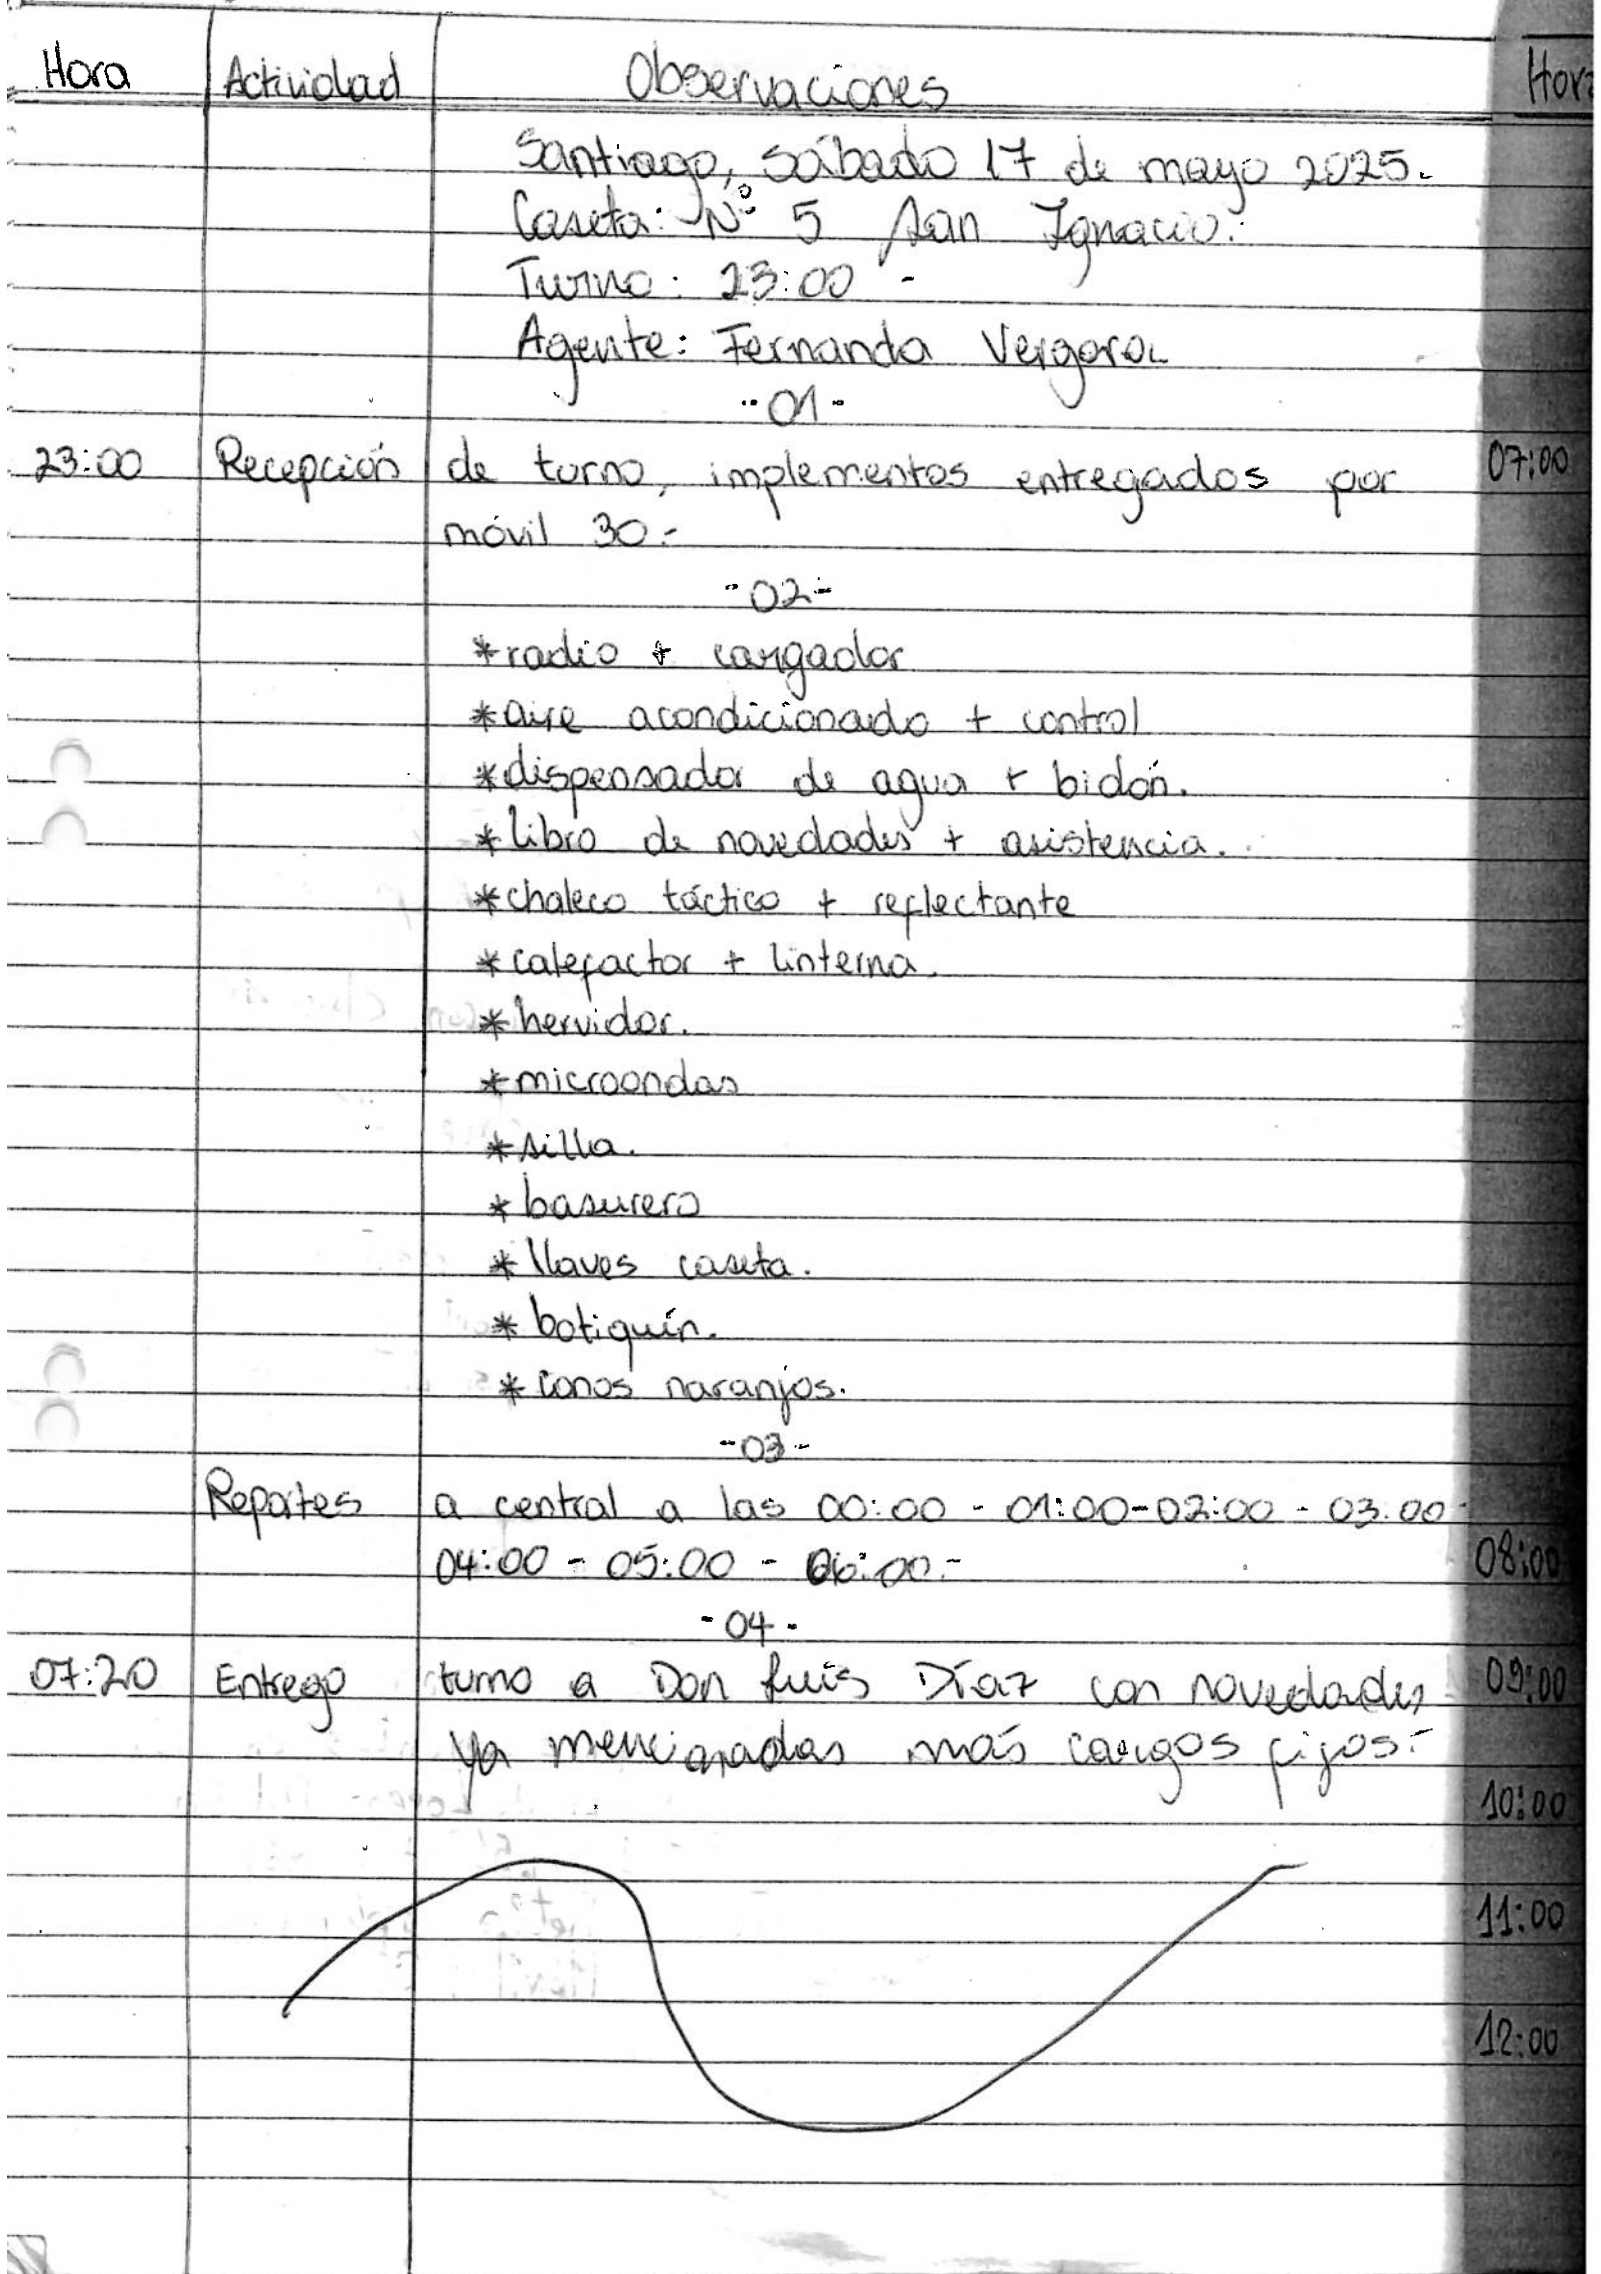 Hora Actividad Observaciones Hor
Santiago, sábado 17 de mayo 2025.-
Caseta: N° 5 San Ignacio.-
Turno: 23:00 -
Agente: Fernanda Vergara
-01-
23:00 Recepción de turno, implementos entregados por 07:00
móvil 30.-
-02-
*radio + cargador
*aire acondicionado + control
*dispensador de agua + bidón.
*libro de novedades + asistencia.
*chaleco táctico + reflectante
*calefactor + linterna.
*hervidor.
*microondas
*silla.
*basurero
*llaves caseta.
*botiquín.
*conos naranjos.
-03-
Reportes a central a las 00:00 - 01:00-02:00 - 03:00-
04:00 - 05:00 - 06:00.- 08:00
-04-
07:20 Entrego turno a Don Luis Díaz con novedades 09:00
ya mencionadas más cargos fijos.-
10:00
11:00
12:00